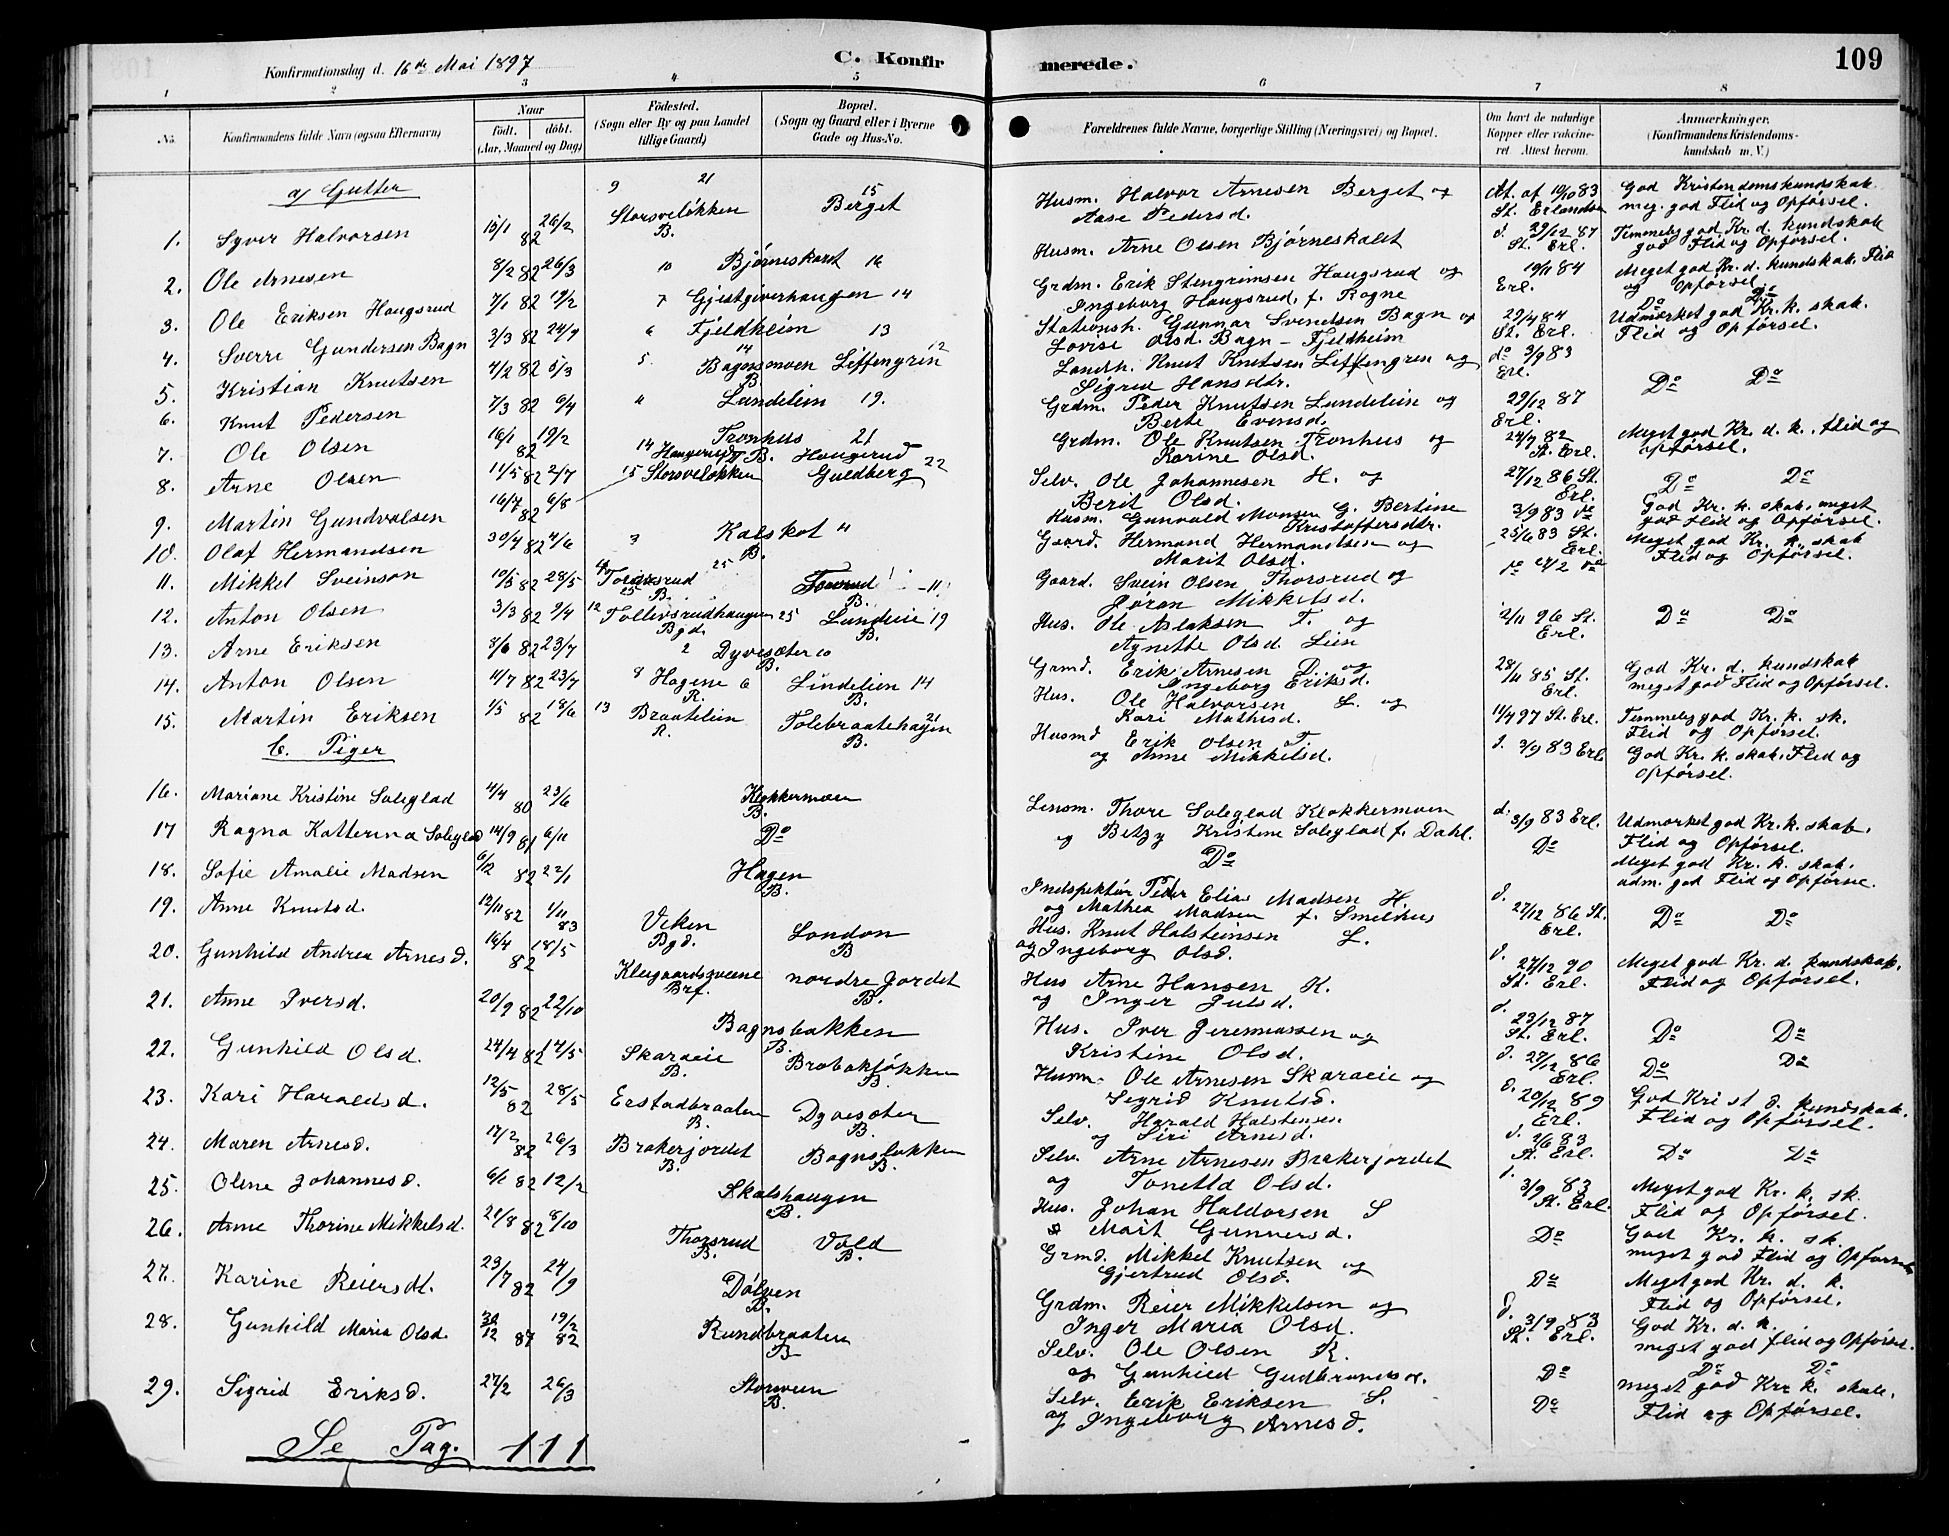 Konfirmationsdag d. 16de Mai 1897
C. Konfirmerede.
109
1 2 3 4 5 6 7 8
No.
Konfirmandens fulde Navn (ogsaa Efternavn)
Naar
født. døbt.
(Aar, Maaned og Dag)
Fødested.
(Sogn eller By og paa Landet
tillige Gaard)
Bopæl.
(Sogn og Gaard eller i Byerne
Gade og Hus-No.
Forældrenes fulde Navne, borgerlige Stilling (Næringsvei) og Bopæl.
Om havt de naturlige
Kopper eller vakcine-
ret Attest herom.
Anmærkninger.
(Konfirmandens Kristendoms-
kundskab m. V.)
a) Gutter
1. Syver Halvorsen 15/1 82 26/2 Storsveløkken B. Berget Husm. Halvor Arnesen Berget og Aase Pedersd. At. af 19/10 83 St. Erlandsen God Kristendomskundskab meg. god Flid og Opførsel.
2. Ole Arnesen 8/2 82 26/3 Bjørneskaret Husm. Arne Olsen Bjørneskalet d. 29/12 87 St. Erl. Temmelig god Kr. d. kundskab god Flid og Opførsel.
3. Ole Eriksen Haugsrud 7/1 82 19/2 Gjestgiverhaugen Grdm. Erik Stengrimsen Haugsrud og Ingeborg Haugsrud, f. Rogne 19/11 84 Erl. Meget god Kr. d. kundskab Flid og Opførsel
4. Sverre Gundersen Bagn 3/3 82 24/9 Fjeldheim Stationsh. Gunnar Svendsen Bagn og Lovise Olsd. Bagn - Fjeldheim 29/4 84 St. Erl. Udmærket god Kr. k. skab. Flid og Opførsel.
5. Kristian Knutsen 4/2 82 5/3 Bagnsmoen B. Liffengrin Landh. Knut Knutsen Liffengren og Sigrid Hansdtr. do 3/9 83 Erl. Do Do
6. Knut Pedersen 7/3 82 9/4 Lundelein 19. Grdm. Peder Knutsen Lundelein og Berte Evensd. 29/12 87 Erl.
7. Ole Olsen 16/1 82 19/2 Tronhus 21 Grdm. Ole Knutsen Tronhus og Karine Olsd. 24/7 82 St. Erl. Meget god Kr. d. k., Flid og opførsel.
8. Arne Olsen 11/5 82 2/7 Haugerud B. Haugerud Selv. Ole Johannesen H. og Berit Olsd. 27/12 86 St. Erl. Do Do
9. Martin Gundvalsen 16/7 82 6/8 Storsveløkken Guldberg 22 Husm. Gunvald Monsen G. Bertine Kristoffersdtr. 3/9 83 do God Kr. k. skab, meget god Flid og Opførsel.
10. Olaf Hermandsen 30/4 82 4/6 Kalskot B. Gaard. Hermand Hermandsen og Marit Olsd. 25/6 83 St. Erl. Meget god Kr. k. skab Flid og Opførsel
11. Mikkel Sveinson 19/5 82 28/5 B. Gaard. Svein Olsen Thorsrud og Jøran Mikkelsd.
12. Anton Olsen 3/3 82 9/4 Tollevsrudhaugen Bgd. Lundeie 19 B. Hus. Ole Aslaksen T. og Agnette Olsd. Lien 2/11 96 St. Erl. Do Do
13. Arne Eriksen 8/6 82 23/7 Dyvesæter B. Grmd. Erik Arnesen D. og Ingeborg Eriksd. 28/11 85 St. Erl. God Kr. d. kundskab meget god Flid og Opførsel.
14. Anton Olsen 11/7 82 23/7 Hagene R. Lindelien 14 B. Hus. Ole Halvorsen L. og Kari Mathisd. 11/4 97 St. Erl. Temmelig god Kr. k. sk. Flid og Opførsel.
15. Martin Eriksen 1/5 82 18/6 Braatelein R. Tolebraatehagen B. Husmd Erik Olsen T. og Anne Mikkelsd. d. 3/9 83 Erl. God Kr. k. skab. Flid og Opførsel.
b. Piger
16. Mariane Kristine Soleglad 11/4 80 23/6 Klokkermoen B. Lensm. Thore Soleglad Klokkermoen og Betzy Kristine Soleglad f. Dahl. d. 3/9 83 Erl. Udmærket god Kr. k. skab. Flid og Opførsel.
17 Ragna Katterina Soleglad 14/9 81 6/11 Do Do Do Meget god Kr. k. skab. udm. god Flid og Opførse.
18. Sofie Amalie Madsen 6/12 82 22/1 Hagen B. Indspektør Peder Elias Madsen H. og Mathea Madsen f. Smelhus d. 27/12 86 St. Erl. Do Do
19. Anne Knutsd. 12/11 82 1/11 83 Viken Bgd. London B Hus. Knut Halsteinsen L. og Ingeborg Olsd.
20. Gunhild Andrea Arnesd. 16/4 82 18/5 Klugaardszveene Brf. nordre Jordet B. Hus Arne Hansen K. og Inger Julsd. d. 27/12 90 St. Erl. Meget god Kr. d. kundskab. Flid og Opførsel.
21. Anne Iversd. 20/9 82 22/10 Bagnsbakken B. Hus. Iver Jeremiassen og Kristine Olsd. d. 23/12 87 St. Erl. Do Do
22. Gunhild Olsd. 24/4 82 14/5 Skaraeie B. Brabakføkken B. Husm. Ole Arnesen Skaraeie og Sigrid Knutsd. d. 29/12 86 Erl. Do Do
23. Kari Haraldsd. 12/5 82 28/5 Erstadbraaten B. Dyvesæter B. Selv. Harald Halstensen og Siri Arnesd. d. 20/12 89 Erl. God Krist d. kundskab. Flid og Opførsel.
24. Maren Arnesd. 17/2 82 26/3 Brakerjordet B. Bagnsløkken B. Selv. Arne Arnesen Brakerjordet og Tonetta Olsd. d. 2/6 83 St. Erl. Do Do
25. Oline Johannesd. 6/1 82 12/2 Skalshaugen B. Hus. Johan Haldorsen S & Mait Gunnersd. d. 3/9 83 St. Erl. Meget god Kr. k. sk. Flid og Opførsel.
26. Anne Thorine Mikkelsd. 21/8 82 8/10 Thorsrud B. Vold B. Grmd. Mikkel Knutsen og Gjertrud Olsd. Do God Kr. k. sk. meget god Flid og Opførsel
27. Karine Reiersdt. 23/7 82 24/9 Dølven B. Grdm. Reier Mikkelsen og Inger Maria Olsd. Do Meget god Kr. d. k. Flid og Opførsel.
28. Gunhild Maria Olsd. 30/12 81 19/2 82 Rundbraaten B Selv. Ole Olsen R. og Gunhild Gudbrandsd. d. 3/9 83 St. Erl. God Kr. d. k. meget god flid og Opførsel. Do Do
29. Sigrid Eriksd. 27/2 26/3 Storveen B. Selv. Erik Eriksen S. og Ingeborg Arnesd. Do Do meget god Kr. k. skab. Flid og Opførsel.
Se Pag. 111